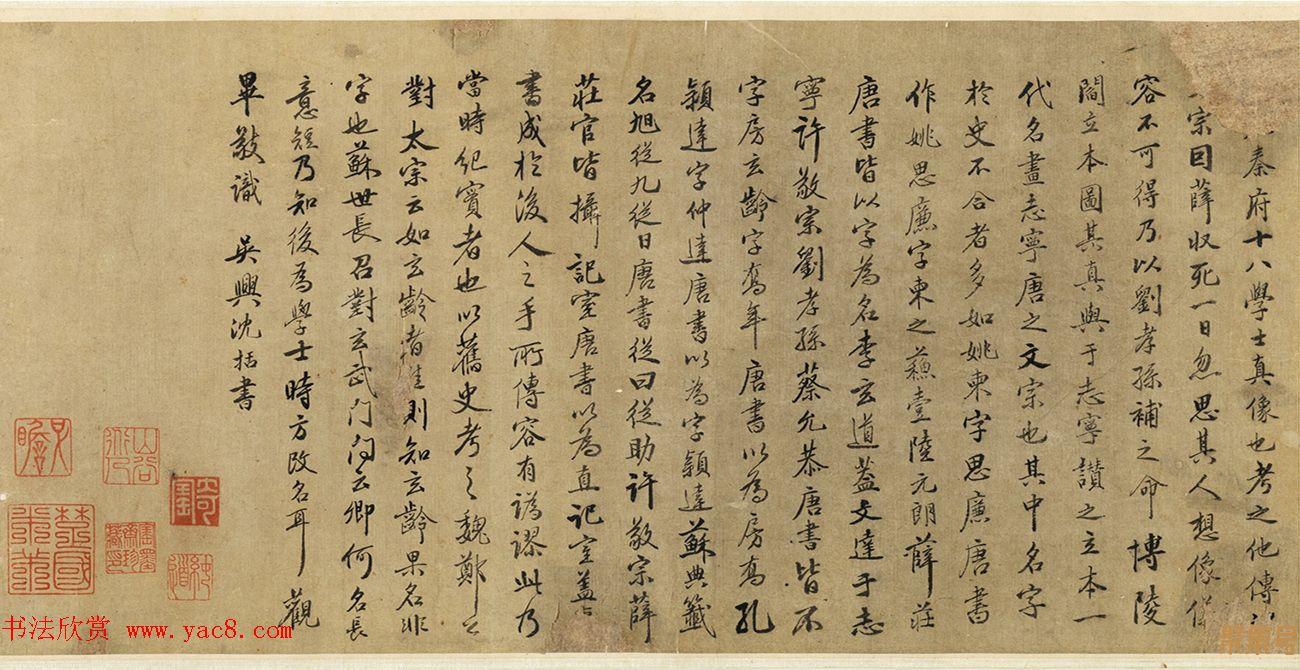 秦府十八學士真像也考之他傳
宗曰薛収死一日忽思其人想像儀
容不可得乃以劉孝孫補之命博陵
閻立本圖其真與于志寧讃之立本一
代名畫志寧唐之文宗也其中名字
於史不合者多如姚柬字思廉唐書
作姚思廉字柬之蘓壹陸元朗薛莊
唐書皆以字為名李玄道葢文達于志
寧許敬宗劉孝孫蔡允恭唐書皆不
字房玄齡字喬年唐書以為房喬孔
穎達字仲達唐書以為字穎達蘇典籖
名旭從九從日唐書從曰從助許敬宗薛
莊官皆攝記室唐書以為直記室葢
書成於後人之手所傳容有譌謬此乃
當時紀實者也以舊史考之魏鄭公
對太宗云如玄齡者惟則知玄齡果名非
字也蘇世長召對玄武門問云卿何名長
意短乃知後為學士時方改名耳觀
畢敬識 吳興沈括書
山谷
奇
劉
书法欣赏 www.yac8.com